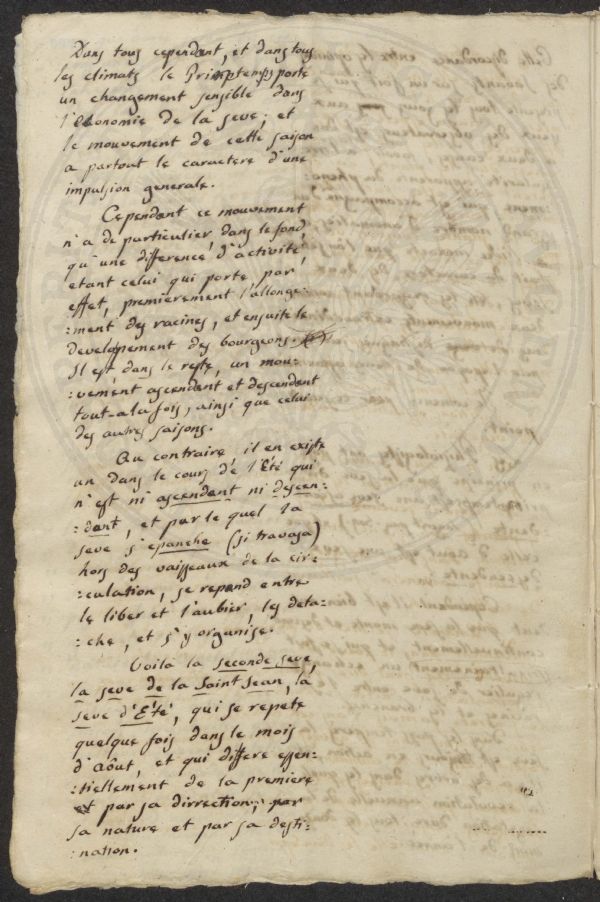 Dans tous cependant, et dans tous
les climats le Printemps porte
un changement sensible dans
l'economie de la seve; et
le mouvement de cette saison
a partout le caractere d'une
impulsion generale.
Cependant ce mouvement
n'a de particulier, dans le fond,
qu'une difference d'activité,
etant celui qui porte, par
effet, premierement l'allonge:
:ment des racines, et ensuite le
developement des bourgeons.
Il est dans le reste, un mou:
:vement ascendent et descendent
tout-a la fois, ainsi que celui
des autres saisons.
Au contraire, il en existe
un dans le cours de l'Eté qui
n'est ni ascendant ni descen:
:dant, et par le quel la
seve s'epanche (si travasa)
hors des vaisseaux de la cir:
:culation, se repand entre
le liber et l'aubier, les deta:
:che, et s'y organise.
Voila la seconde seve,
la seve de la Saint Jean, la
seve d'Eté, qui se repete
quelque fois dans le mois
d'Août, et qui differe essen:
:tiellement de la premiere
et par sa dirrection, par
sa nature et par sa desti:
:nation.